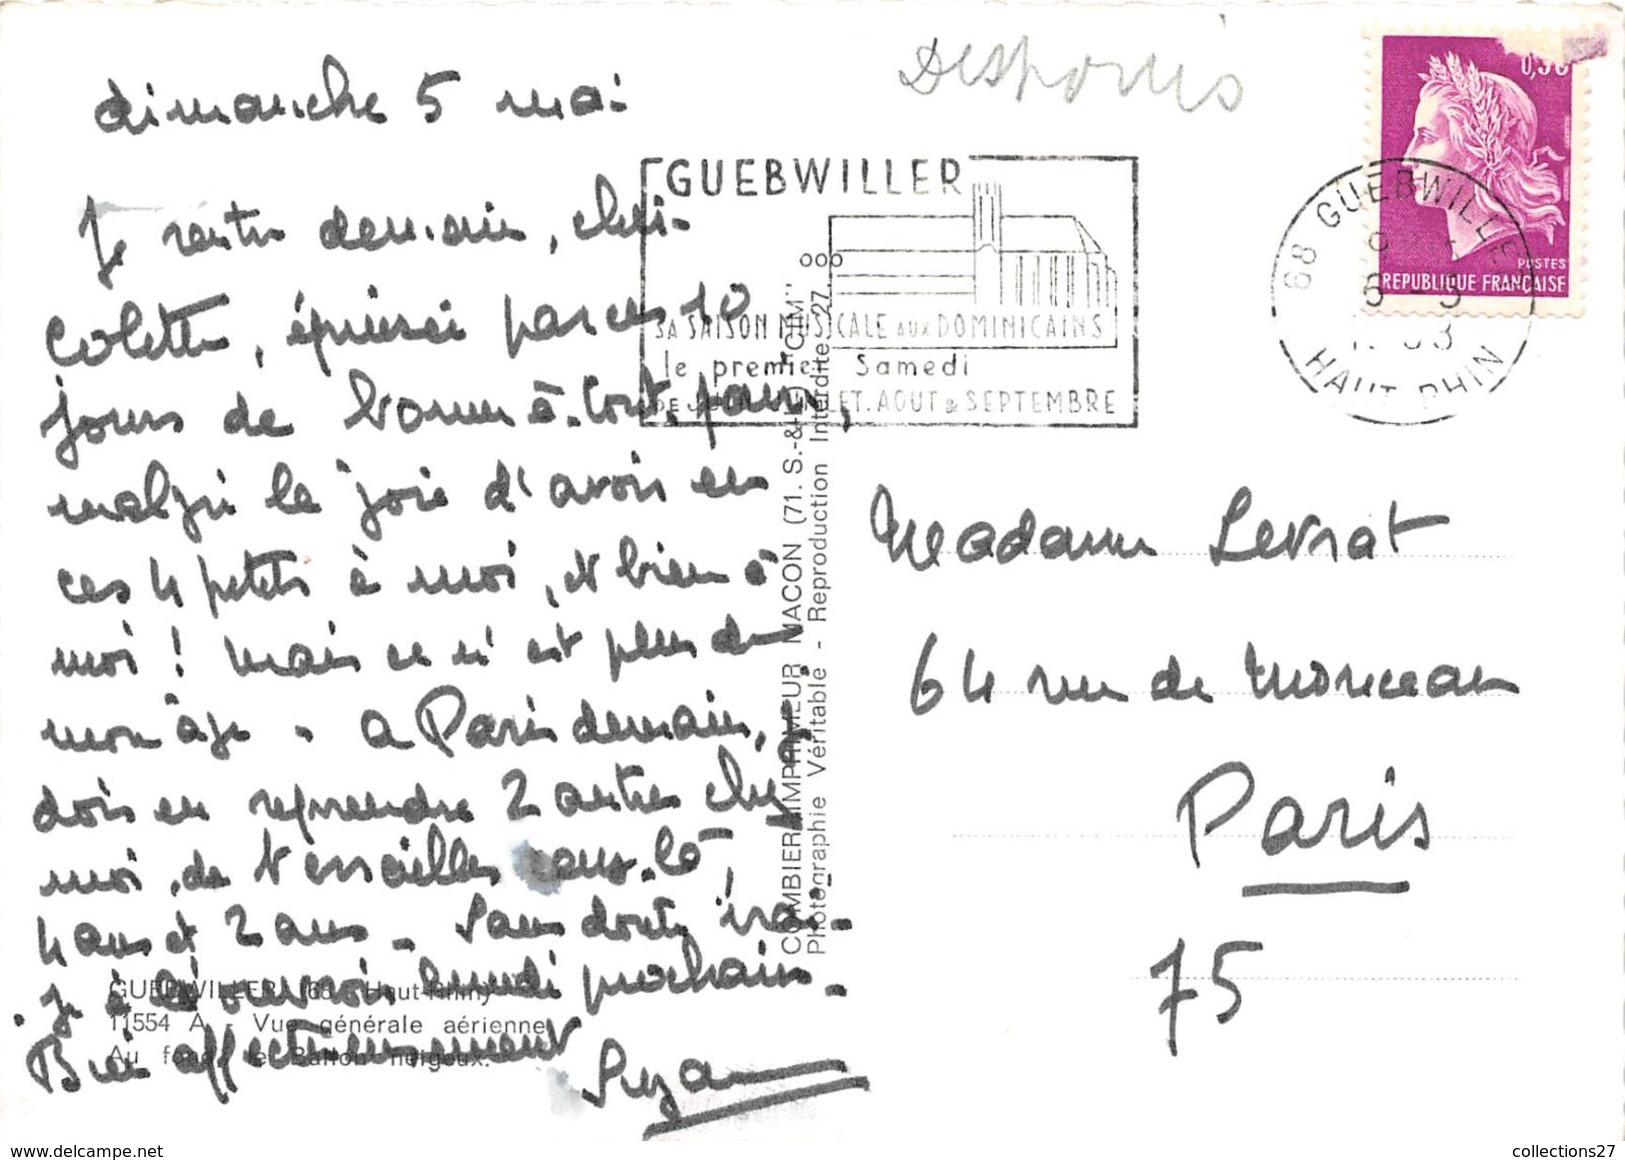 Desponis
dimanche 5 mai
Je rentre demain, chez
Colette, épuisée par ces 10
jours de bonne à tout faire,
malgré la joie d'avoir eu
ces 4 petits à moi, et bien à
moi ! mais ce n'est plus de
mon âge. a Paris demain, je
dois en reprendre 2 autres chez
moi, de Versailles ceux-là,
4 ans et 2 ans. Sans doute irai-
je à l'ouvroir lundi prochain.
Bien affectueusement
Suzanne
GUEBWILLER (68 - Haut-Rhin)
11554 A - Vue générale aérienne
Au fond, le Ballon neigeux.
COMBIER IMPRIMEUR MACON (71. S.-&-L.) "CIM"
Photographie Véritable - Reproduction Interdite 27
GUEBWILLER
SA SAISON MUSICALE AUX DOMINICAINS
le premier Samedi
DE JUIN JUILLET. AOUT & SEPTEMBRE
0,30
POSTES
REPUBLIQUE FRANÇAISE
68 GUEBWILLER
HAUT RHIN
Madame Levrat
64 rue de Monceau
Paris
75
collections27